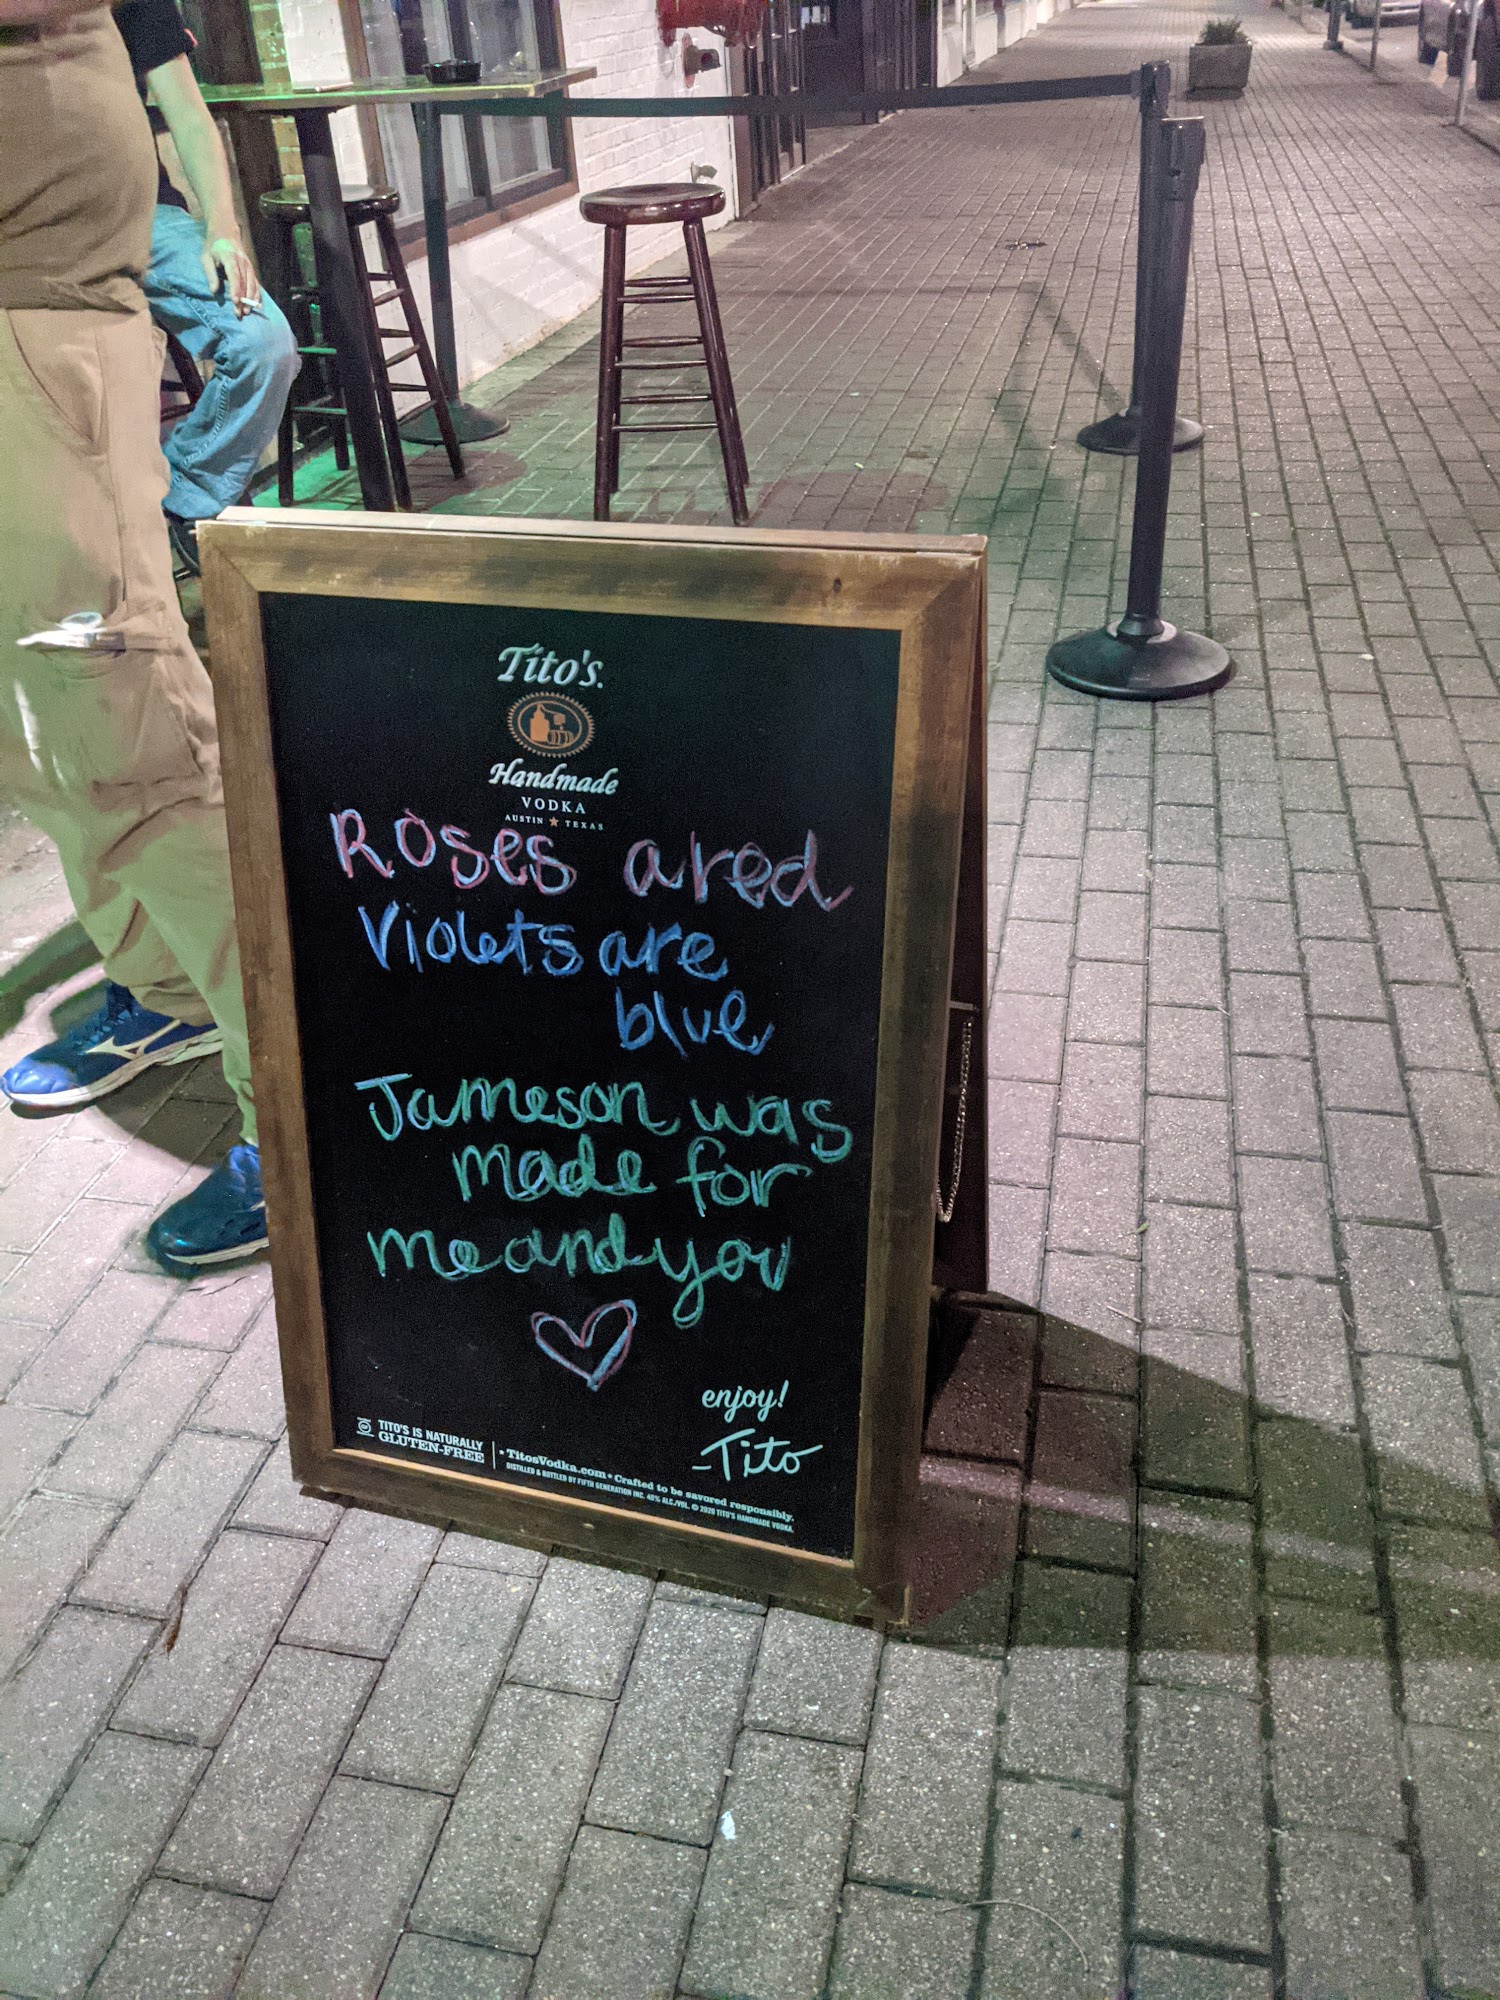 Tito's.
Handmade
VODKA
AUSTIN ★ TEXAS
Roses ared
Violets are
blue
Jameson was
made for
me and you
enjoy!
-Tito
TITO'S IS NATURALLY
GLUTEN-FREE
• TitosVodka.com • Crafted to be savored responsibly.
DISTILLED & BOTTLED BY FIFTH GENERATION INC. 40% ALC./VOL. © 2020 TITO'S HANDMADE VODKA.